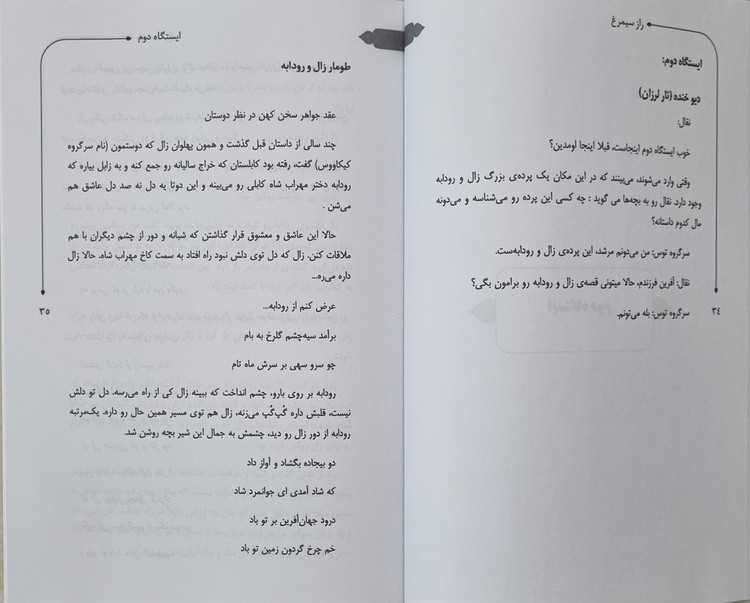 راز سیمرغ
ایستگاه دوم:
دیو خنده (تار لرزان)
نقال:
خوب ایستگاه دوم اینجاست، قبلا اینجا اومدین؟
وقتی وارد می‌شوند، می‌بینند که در این مکان یک پرده‌ی بزرگ زال و رودابه
وجود دارد. نقال رو به بچه‌ها می گوید : چه کسی این پرده رو می‌شناسه و می‌دونه
مال کدوم داستانه؟
سرگروه توس: من می‌دونم مرشد، این پرده‌ی زال و رودابه‌ست.
نقال: آفرین فرزندم، حالا میتونی قصه‌ی زال و رودابه رو برامون بگی؟
سرگروه توس: بله می‌تونم.
۳٤
ایستگاه دوم
طومار زال و رودابه
عقد جواهر سخن کهن در نظر دوستان
چند سالی از داستان قبل گذشت و همون پهلوان زال که دوستمون (نام سرگروه
کیکاووس) گفت، رفته بود کابلستان که خراج سالیانه رو جمع کنه و به زابل بیاره که
رودابه دختر مهراب شاه کابلی رو می‌بینه و این دوتا یه دل نه صد دل عاشق هم
می‌شن .
حالا این عاشق و معشوق قرار گذاشتن که شبانه و دور از چشم دیگران با هم
ملاقات کنن. زال که دل توی دلش نبود راه افتاد به سمت کاخ مهراب شاه. حالا زال
داره می‌ره...
عرض کنم از رودابه...
برآمد سیه‌چشم گلرخ به بام
چو سرو سهی بر سرش ماه تام
رودابه بر روی بارو، چشم انداخت که ببینه زال کی از راه می‌رسه. دل تو دلش
نیست، قلبش داره گُپ‌گُپ می‌زنه، زال هم توی مسیر همین حال رو داره. یک‌مرتبه
رودابه از دور زال رو دید، چشمش به جمال این شیر بچه روشن شد.
دو بیجاده بگشاد و آواز داد
که شاد آمدی ای جوانمرد شاد
درود جهان‌آفرین بر تو باد
خم چرخ گردون زمین تو باد
۳۵